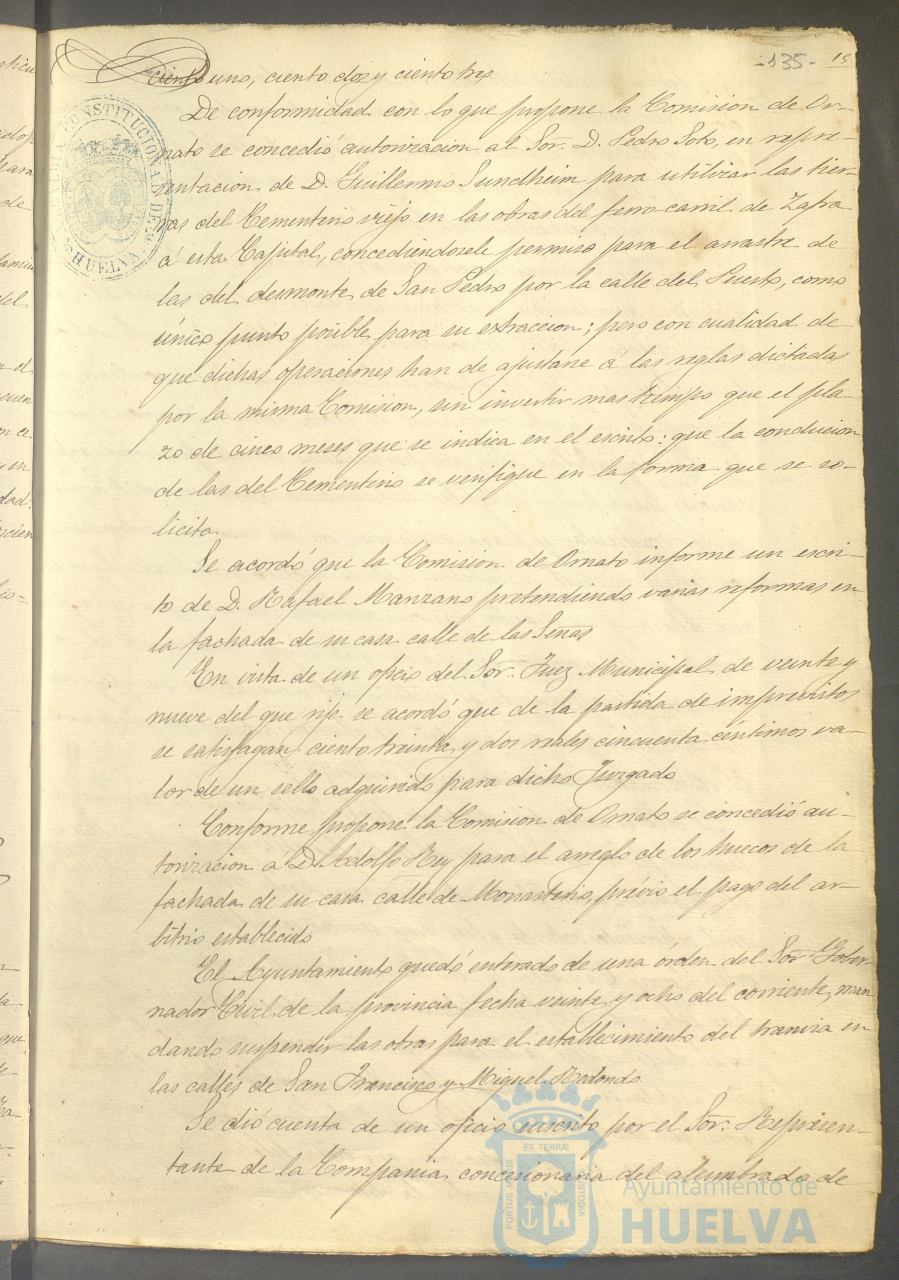 -135- 15
ciento uno, ciento dos y ciento tres
De conformidad con lo que propone la Comision de Or-
nato se concedió autorizacion al Sor. D. Pedro Soto, en repre-
sentacion de D. Guillermo Sundheim para utilizar las tier-
ras del Cementerio viejo en las obras del ferro carril de Zafra
á esta Capital, concediéndosele permiso para el arrastre de
las del desmonte de San Pedro por la calle del Puerto, como
único punto posible para su extraccion; pero con cualidad de
que dichas operaciones han de ajustarse á las reglas dictadas
por la misma Comision, sin invertir mas tiempo que el pla-
zo de cinco meses que se indica en el escrito: que la conducion
de las del Cementerio se verifique en la forma que se so-
licita.
Se acordó que la Comision de Ornato informe un escri-
to de D. Rafael Manzano pretendiendo varias reformas en
la fachada de su casa calle de las Señas
En vista de un oficio del Sor. Juez Municipal de veinte y
nueve del que rije se acordó que de la partida de imprevistos
se satisfagan ciento treinta y dos reales cincuenta céntimos va-
lor de un sello adquirido para dicho Juzgado
Conforme propone la Comision de Ornato se concedió au-
torizacion á D. Adolfo Rey para el arreglo de los huecos de la
fachada de su casa calle de Monasterio, prévio el pago del ar-
bitrio establecido
El Ayuntamiento quedó enterado de una órden del Sor Gober-
nador Civil de la provincia fecha veinte y ocho del corriente, man
dando suspender las obras para el establecimiento del tranvia en
las calles de San Francisco y Miguel Redondo
Se dió cuenta de un oficio suscrito por el Sor. Represen-
tante de la Compania concesionaria del alumbrado de
CONSTITUCIONAL DE
HUELVA
PORTUS MARIS ET TERRÆ CUSTODIA
Ayuntamiento de
HUELVA